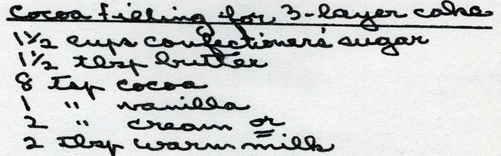 Cocoa filling for 3-layer cake
1½ cups confectioners' sugar
1½ tbsp butter
8 tsp cocoa
1 " vanilla
2 " cream or
2 tbsp warm milk